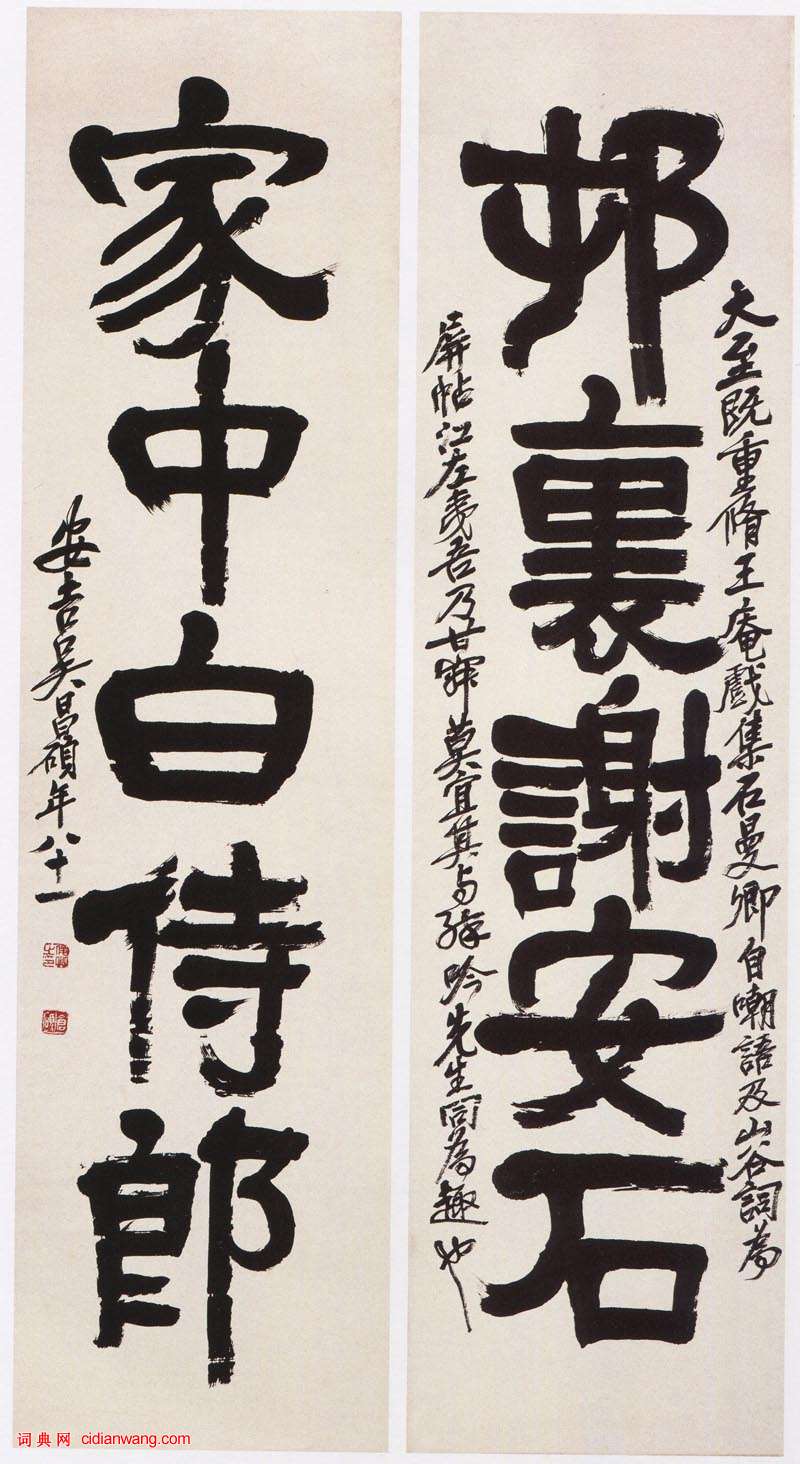 大至既重脩王庵戲集石曼卿自嘲語及山谷詞為
邨裏謝安石
屏帖江左夷吾乃甘莫宜其与吟先生同為趣也
家中白侍郎
安吉吳昌碩年八十一
词典网 cidianwang.com